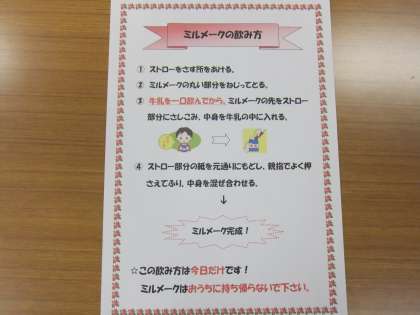 ミルメークの飲み方
① ストローをさす所をあける。
② ミルメークの丸い部分をねじってとる。
③ 牛乳を一口飲んでから、ミルメークの先をストロー
部分にさしこみ、中身を牛乳の中に入れる。
④ ストロー部分の紙を元通りにもどし、親指でよく押
さえてふり、中身を混ぜ合わせる。
↓
ミルメーク完成!
☆この飲み方は今日だけです!
ミルメークはおうちに持ち帰らないで下さい。